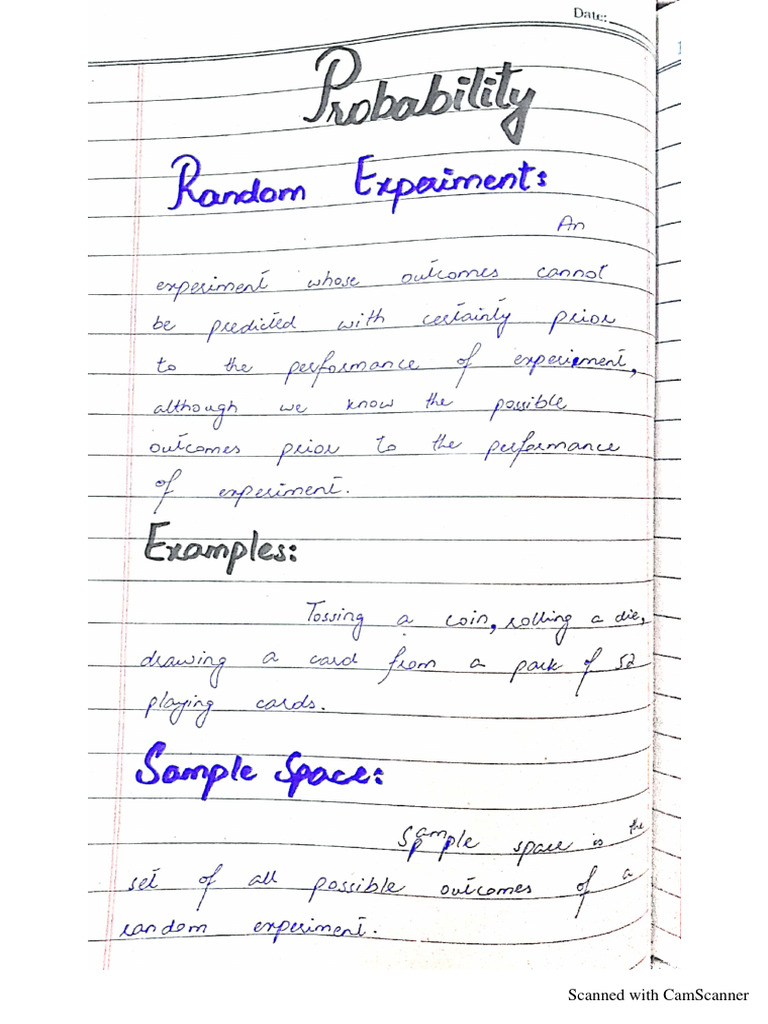 Date:
Probability
Random Experiment:
An
experiment whose outcomes cannot
be predicted with certainty prior
to the performance of experiment,
although we know the possible
outcomes prior to the performance
of experiment.
Examples:
Tossing a coin, rolling a die,
drawing a card from a pack of 52
playing cards.
Sample Space:
Sample space is the
set of all possible outcomes of a
random experiment.
Scanned with CamScanner